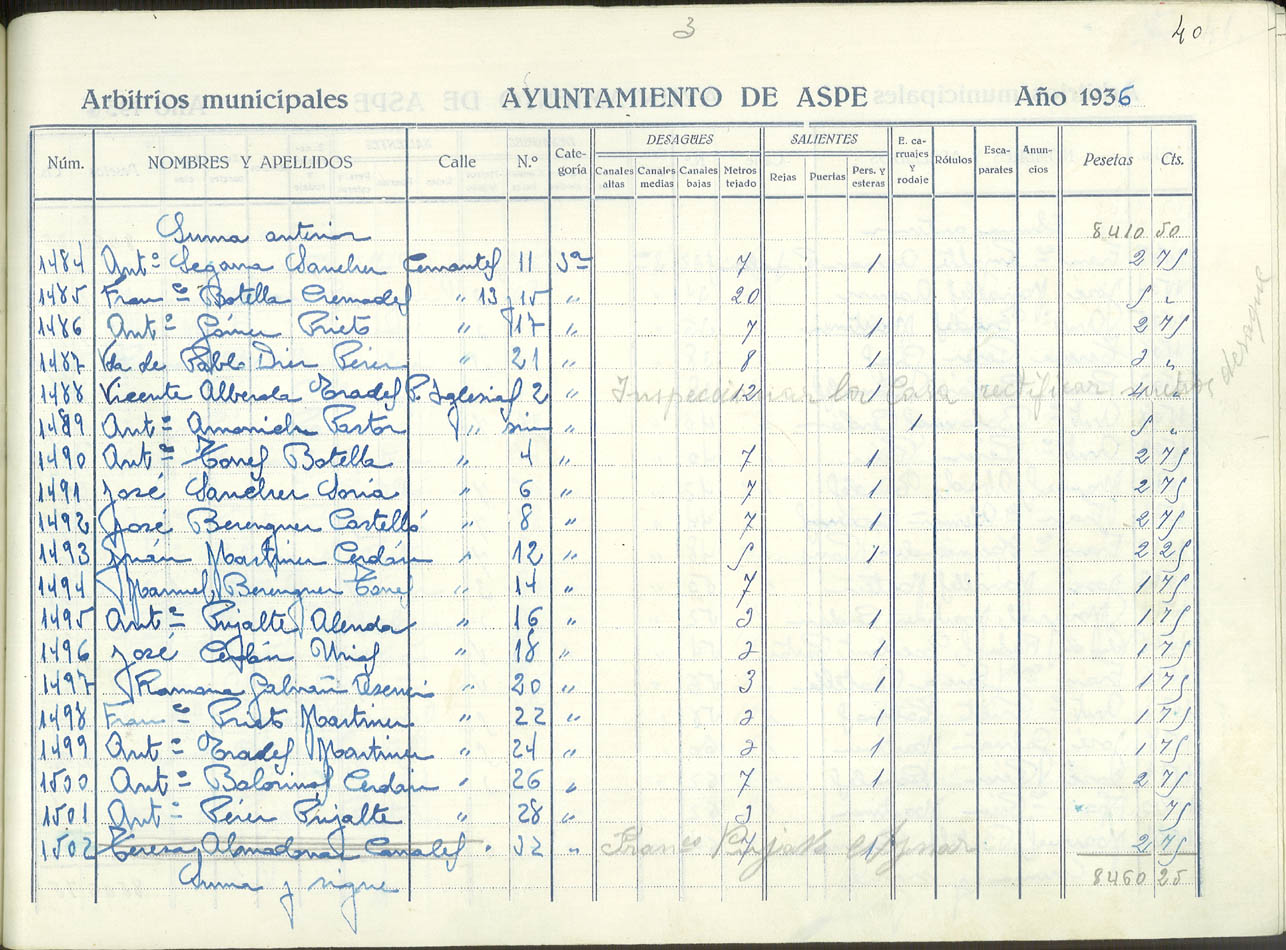 3
40
Arbitrios municipales AYUNTAMIENTO DE ASPE Año 1936
Núm. NOMBRES Y APELLIDOS Calle N.º Cate-goría DESAGÜES Canales altas Canales medias Canales bajas Metros tejado SALIENTES Rejas Puertas Pers. y esteras E. ca-rruajes y rodaje Rótulos Esca-parates Anun-cios Pesetas Cts.
Suma anterior 8410 50
1484 Antº Segarra Sanchez Cervantes 11 5ª 7 1 2 75
1485 Franco Botella Cremades " 13 y 15 " 20 5 "
1486 Antº Gómez Prieto " 17 " 7 1 2 75
1487 Vda de Pablo Diez Pérez " 21 " 8 1 3 "
1488 Vicente Alberola Prades P. Iglesias 2 " 12 1 4 "
Inspeccionar la Casa rectificar metros desague
1489 Antº Pastor " " sin " 1 5 "
1490 Antº Torres Botella " 4 " 7 1 2 75
1491 José Sanchez Soria " 6 " 7 1 2 75
1492 José Berenguer Castelló " 8 " 7 1 2 75
1493 Juán Martinez Cerdán " 12 " 5 1 2 25
1494 Manuel Berenguer Torres " 14 " 7 1 75
1495 Antº Pujalte Alenda " 16 " 3 1 1 75
1496 José Cerdán Urios " 18 " 2 1 1 75
1497 Ramona Galvañ Asencio " 20 " 3 1 1 75
1498 Franco Prieto Martinez " 22 " 2 1 1 75
1499 Antº Prades Martinez " 24 " 2 1 1 75
1500 Antº Cerdán " 26 " 7 1 2 75
1501 Antº Pérez Pujalte " 28 " 3 75
1502 Teresa Almodovar Canales " 32 " 7 1 2 75
Franco Pujalte
Suma y sigue 8460 25